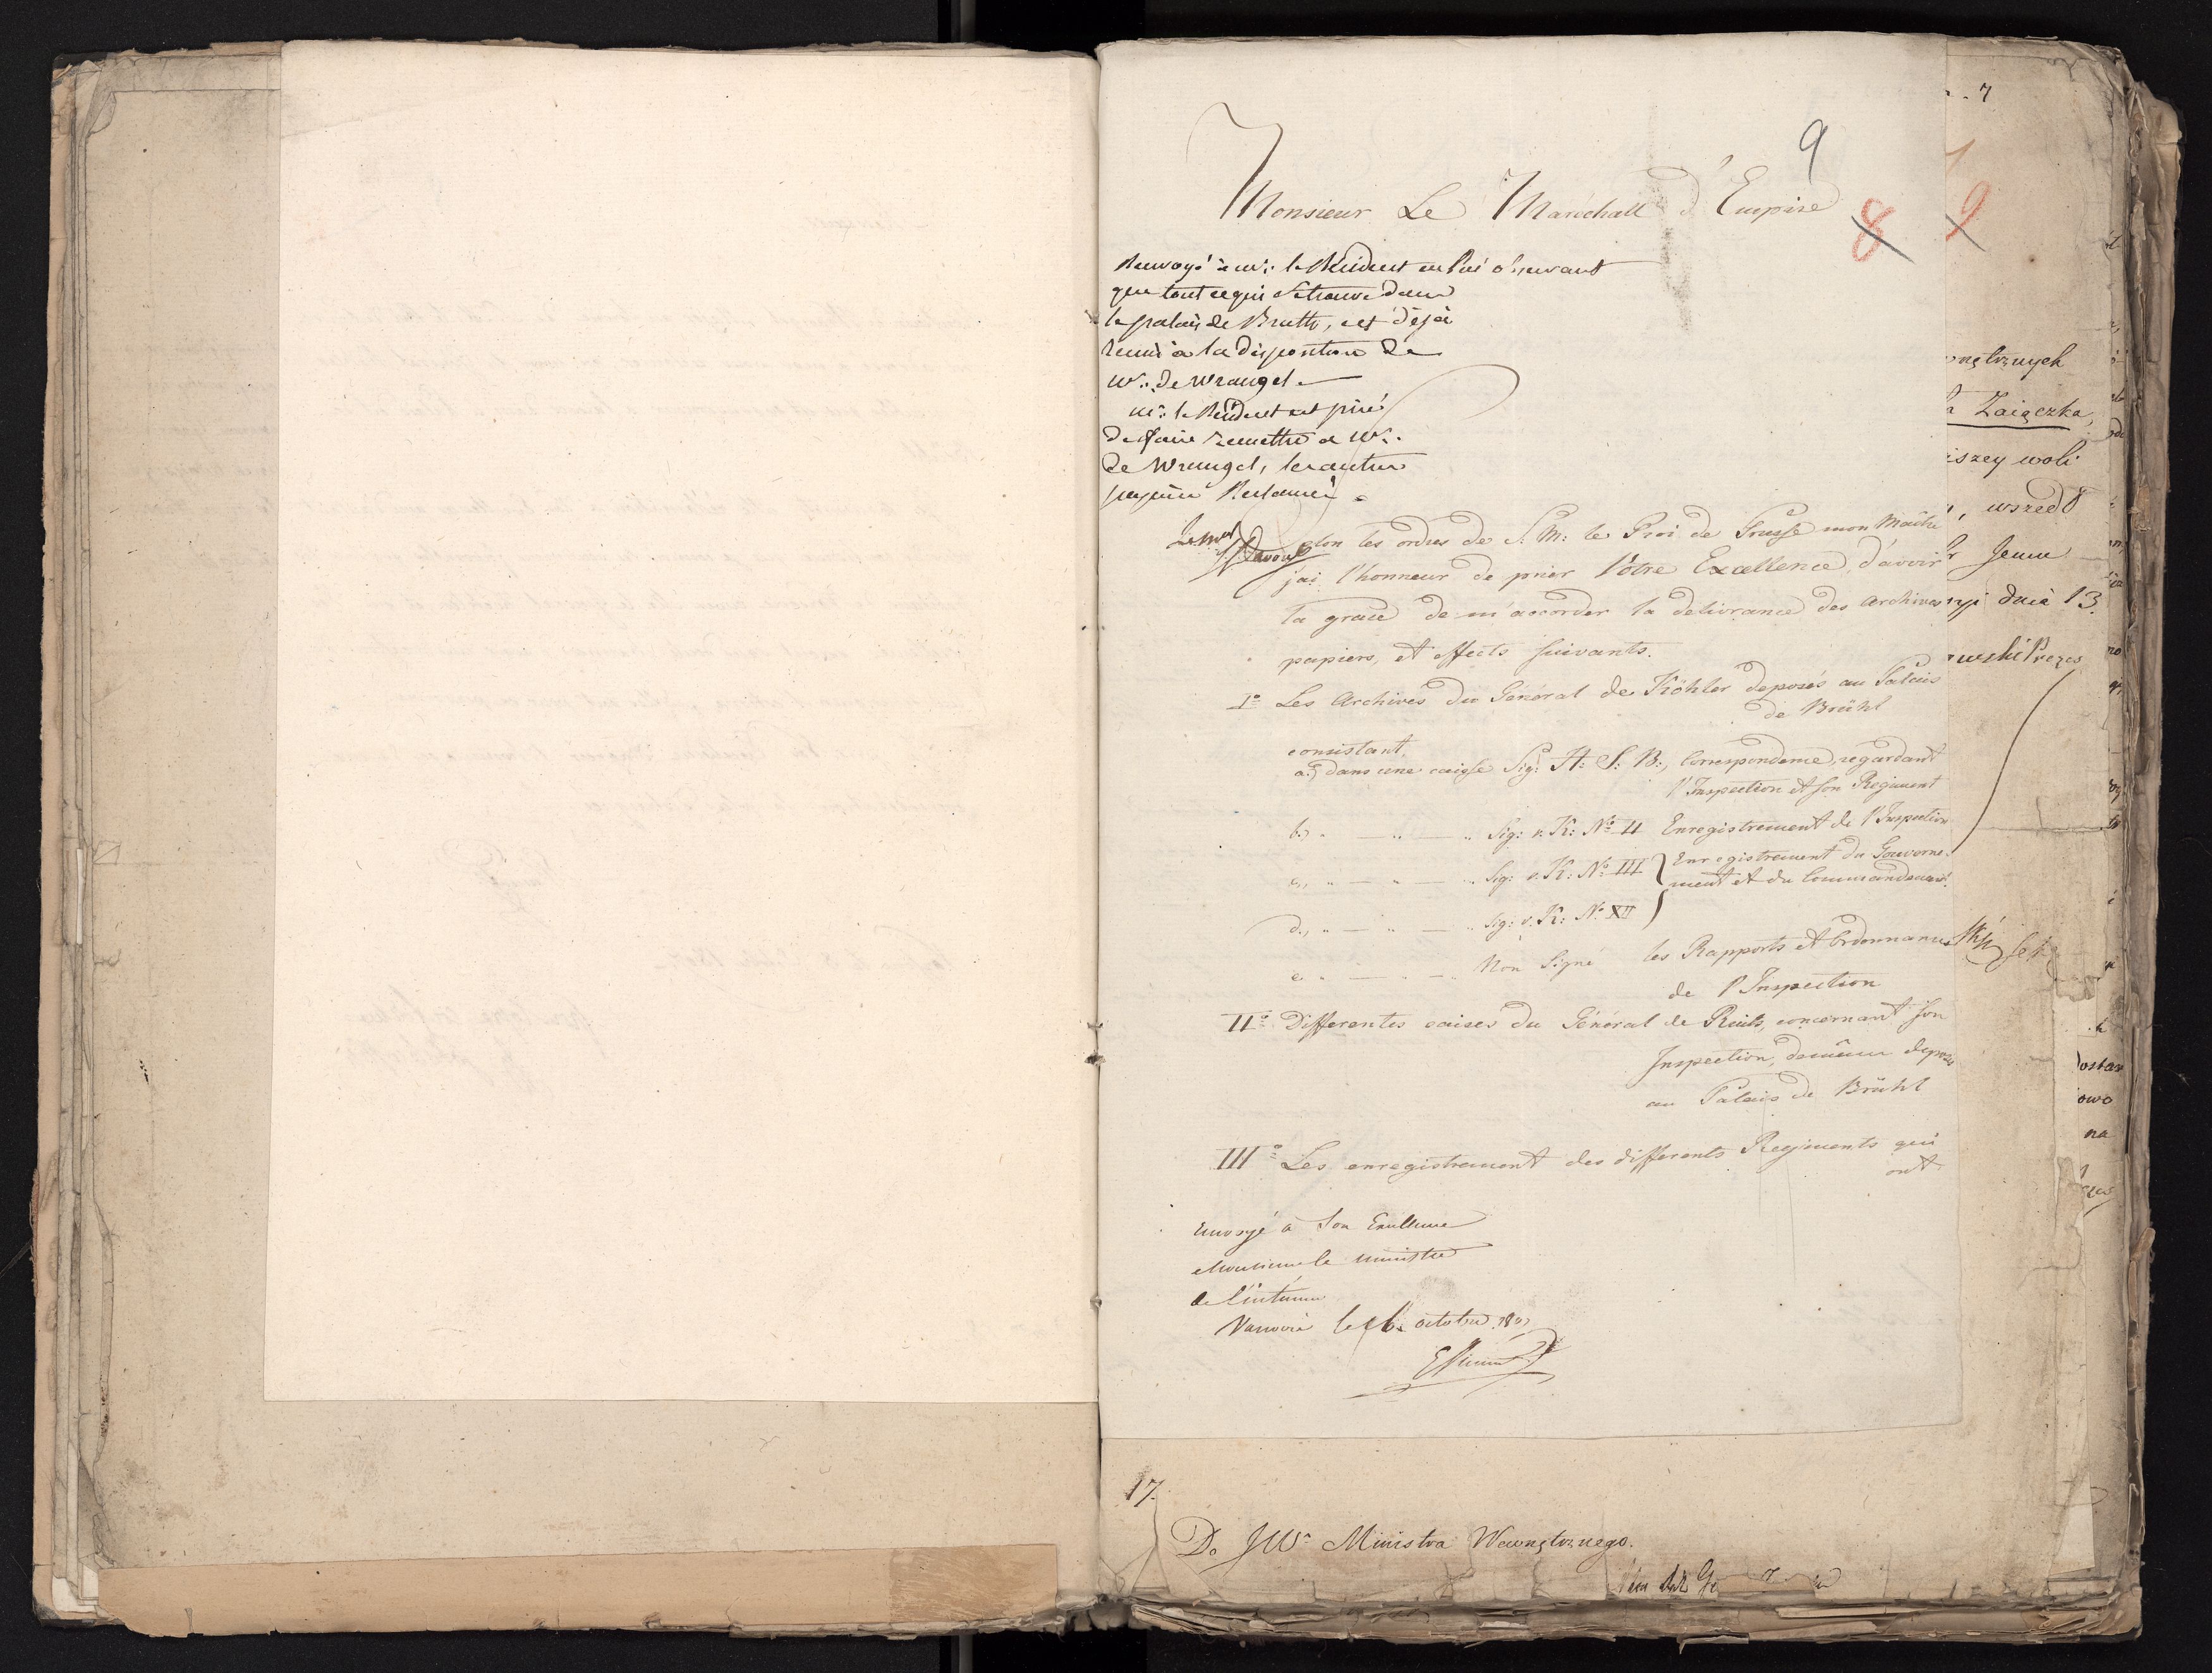 9
Monsieur Le Maréchall d'Empire
8 9
Renvoyé à mr: le Résident en lui observant
que tout ce qui se trouve dans
le palais de Bruth, est déja
remis à la disposition de
mr: de Wrangel
mr: le Résident est prié
de faire remettre a mr.
de Wrangel, les autres
papiers Réclamés
Le mal
Davout
Selon les ordres de S. M: le Roi de Prusse mon Maître
j'ai l'honneur de prier Vôtre Excellence, d'avoir
la grace de m'accorder la delivrance des Archives
papiers, et effects suivants.
I° Les Archives du Général de Köhler deposés au Palais
de Brühl
consistant
a., dans une caisse Sig: H: S: B:, Correspondence, regardant
l'Inspection et son Regiment
b., " — " — " Sig: v. K: No II Enregistrement de l'Inspection
c., " — " — " Sig: v. K: No III } Enregistrement du Gouverne-
ment et du Commandement.
d., " — " — " Sig: v. K: No XII }
e " — " — " Non Signé les Rapports et Ordonnances
de l'Inspection
II° Differentes caises du Général de Ruits, concernant son
Inspection, demême deposés
au Palais de Brühl
III° Les enregistrement des differents Regiments qui
ont
Envoyé à Son Excellence
Monsieur le ministre
de l'interieur
Varsovie le 16 octobre 1807
17.
Do JWo Ministra Wewnętrznego.
7
wnętrznych
Zaiączka,
iszey woli
, wszedł
Jenne
dnia 13.